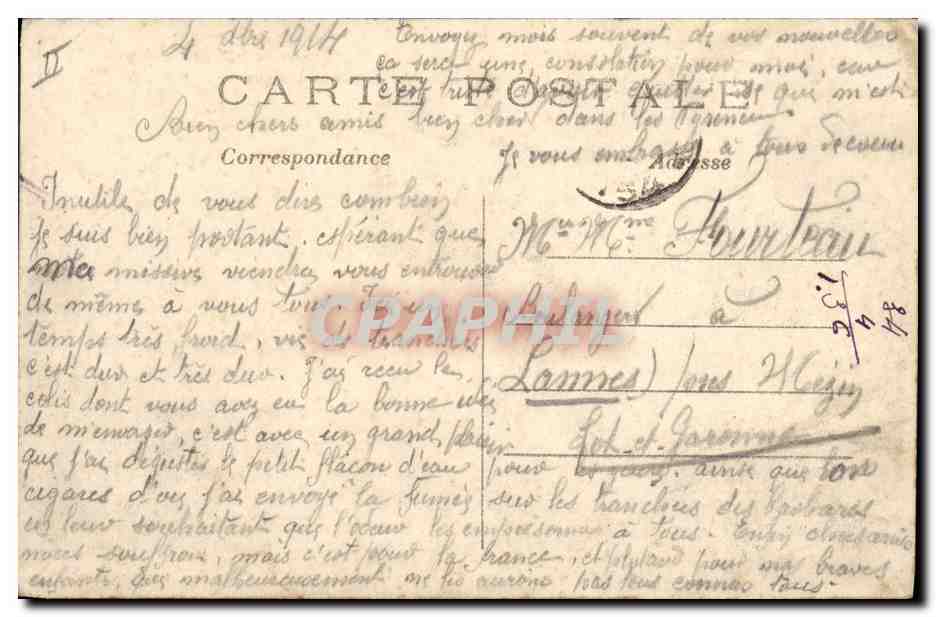 II
4 Xbre 1914
Envoyez mois souvent de vos nouvelles
ça sera une consolation pour moi, car
CARTE POSTALE
c'est triste d'avoir quitter ce que m'est
Bien chers amis bien cher dans les Pyrénées
Correspondance
Adresse
Je vous embrasse à tous de coeur
Inutile de vous dire combien
je suis bien portant, espérant que
ma missive viendra vous entrouver
de même à vous tous. Ici un
temps très froid, vie de tranchées
c'est dur et très dur. J'ai reçu le
colis dont vous avez eu la bonne idée
de m'envoyer, c'est avec un grand plaisir
que j'ai dégusté le petit flacon d'eau
pour ainsi que bon
cigares d'ou j'ai envoyé la fumée sur les tranchées des barbares
en leur souhaitant que l'odeur les empoisonne à tous. Enfin chers amis
nous souffrons, mais c'est pour la France, et plutard pour nos braves
enfants. Que malheureusement ne les aurons pas tous connus tous.
Mr Mme Fourteau
Boulanger à
Lannes près Mézin
Lot-et-Garonne
84
4
1.36
CPAPHIL